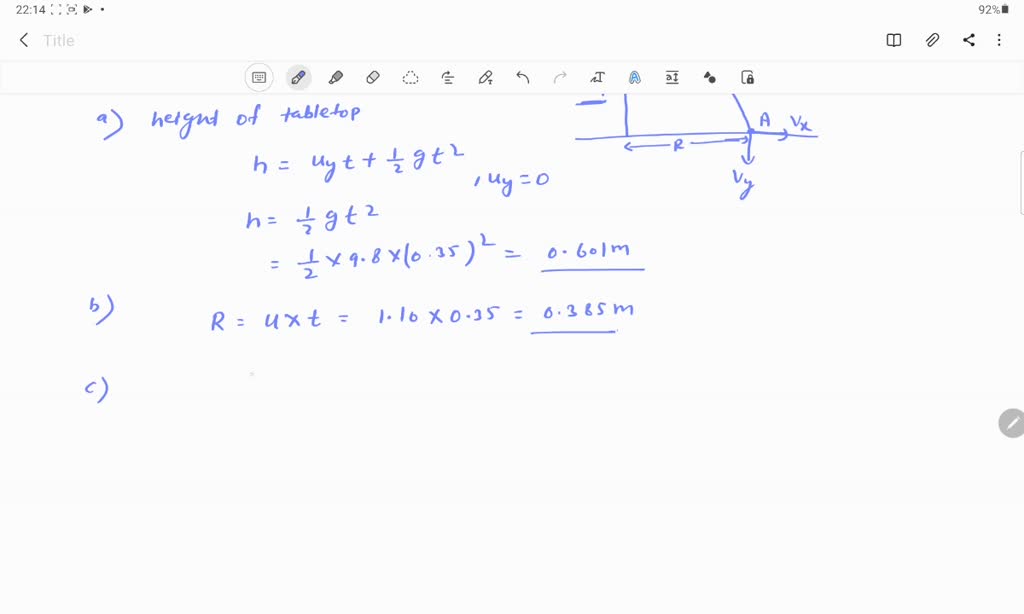 22:14
92%
Title
a) height of tabletop
A Vx
R
Vy
h = uyt + 1/2 gt², uy = 0
h = 1/2 gt²
= 1/2 × 9.8 × (0.35)² = 0.601m
b) R = u×t = 1.10 × 0.35 = 0.385m
c)